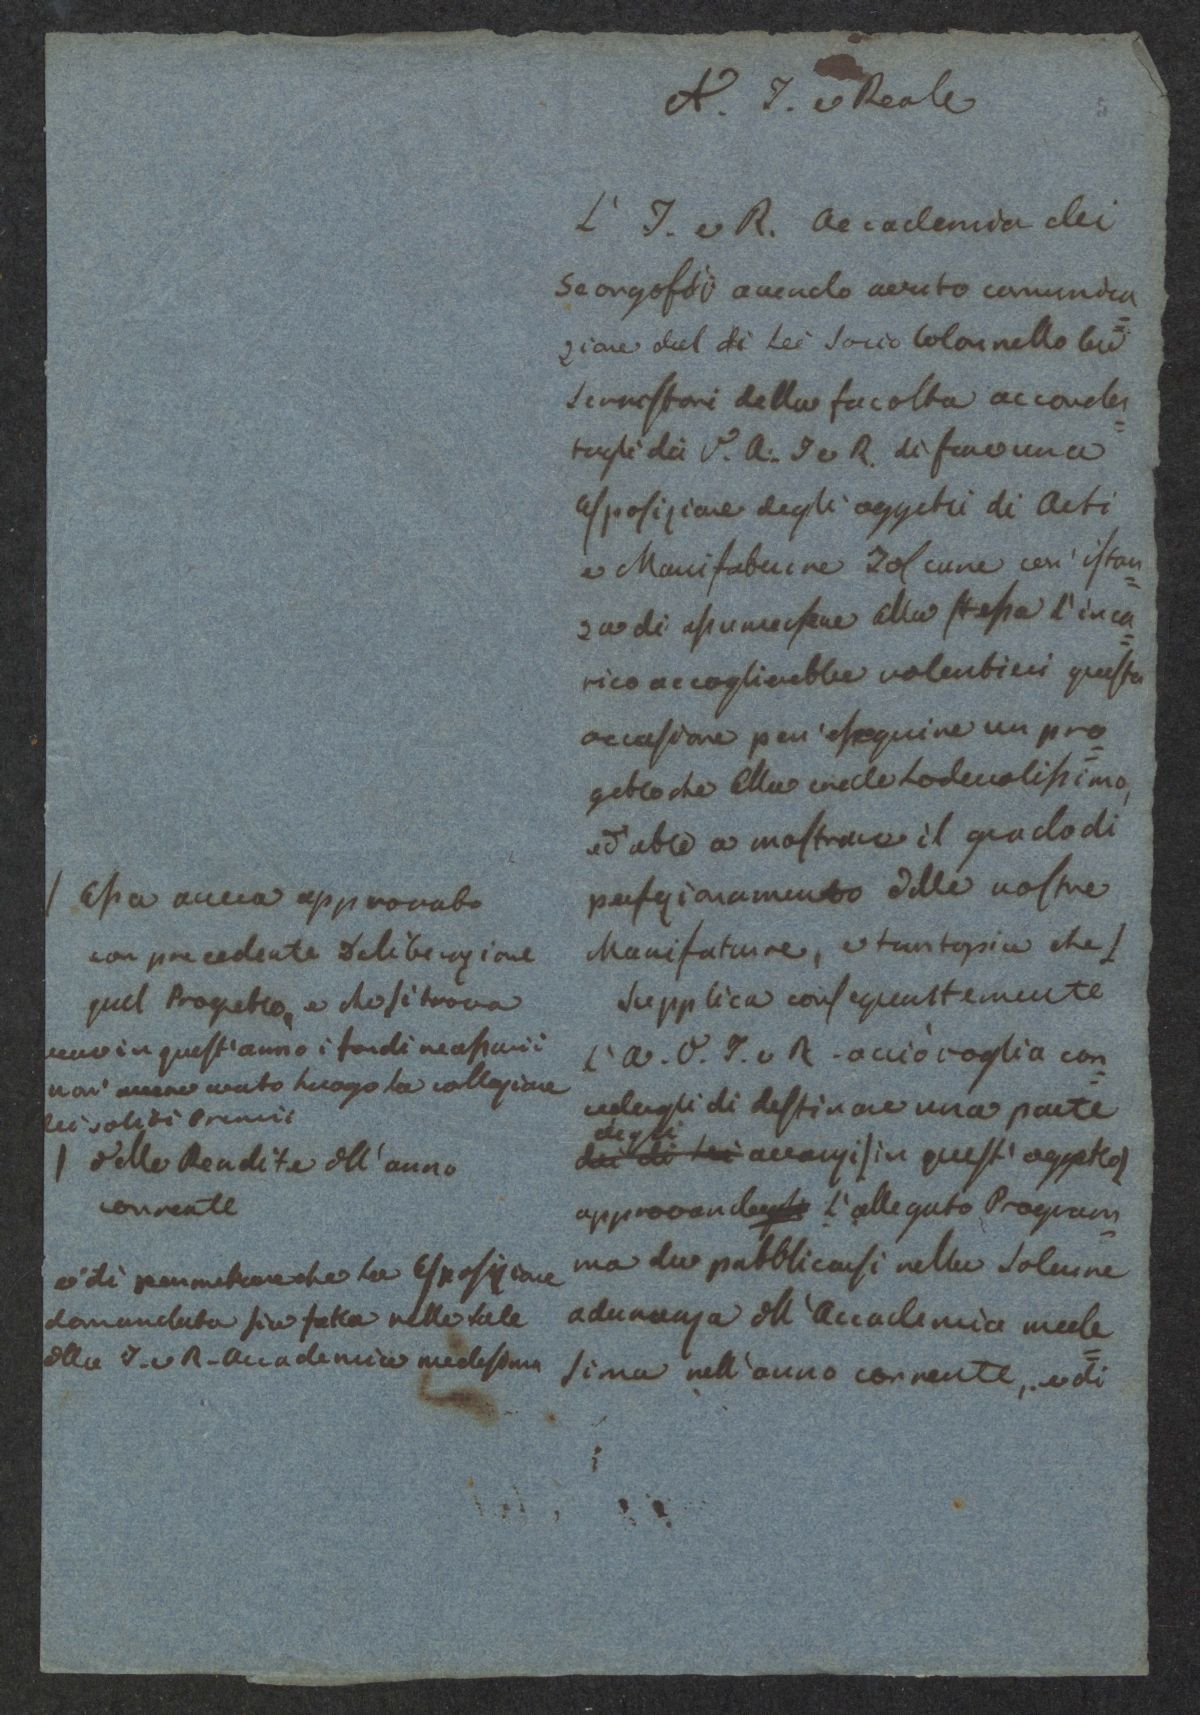 A. I. e Reale
L' I. e R. Accademia dei
Georgofili avendo avuto comunica=
zione dal di Lei Socio Colonnello Cav
Serristori della facoltà accorda=
tagli da V. A. I e R. di fare una
Esposizione degli oggetti di Arti
e Manifatture Toscane con' istan=
za di assumersene Ella stessa l'inca=
rico accoglierebbe volentieri questa
occasione per' eseguire un pro=
getto che Ella crede Lodevolissimo,
ed' atto a mostrare il grado di
perfezionamento delle nostre
Manifatture, e tantopiù che /
Supplica conseguentemente
l'A. V. I. e R. acciò voglia con=
cedergli di destinare una parte
degli
dei di Lei avanzi / in quest' oggetto
approvando L'allegato Program=
ma da pubblicarsi nella Solenne
adunanza dell'Accademia mede=
sima nell'anno corrente, e di
/ Essa aveva approvato
con precedente Deliberazione
quel Progetto, e che si trova
in quest'anno i fondi necessarii
non' avuto luogo la collazione
dei soliti Premii
/ delle Rendite dell'anno
corrente
e di permettere che La Esposizione
domandata sia fatta nelle Sale
della I. e R. Accademia medesima